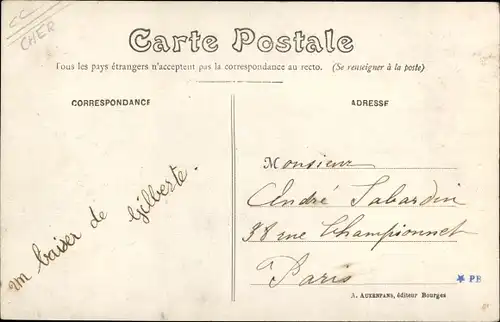 CC
CHER
Carte Postale
Tous les pays étrangers n'acceptent pas la correspondance au recto. (Se renseigner à la poste)
CORRESPONDANCE
un baiser de
Gilberte.
ADRESSE
Monsieur
André Sabardin
38 rue Championnet
Paris
PB
A. AUXENFANS, éditeur Bourges